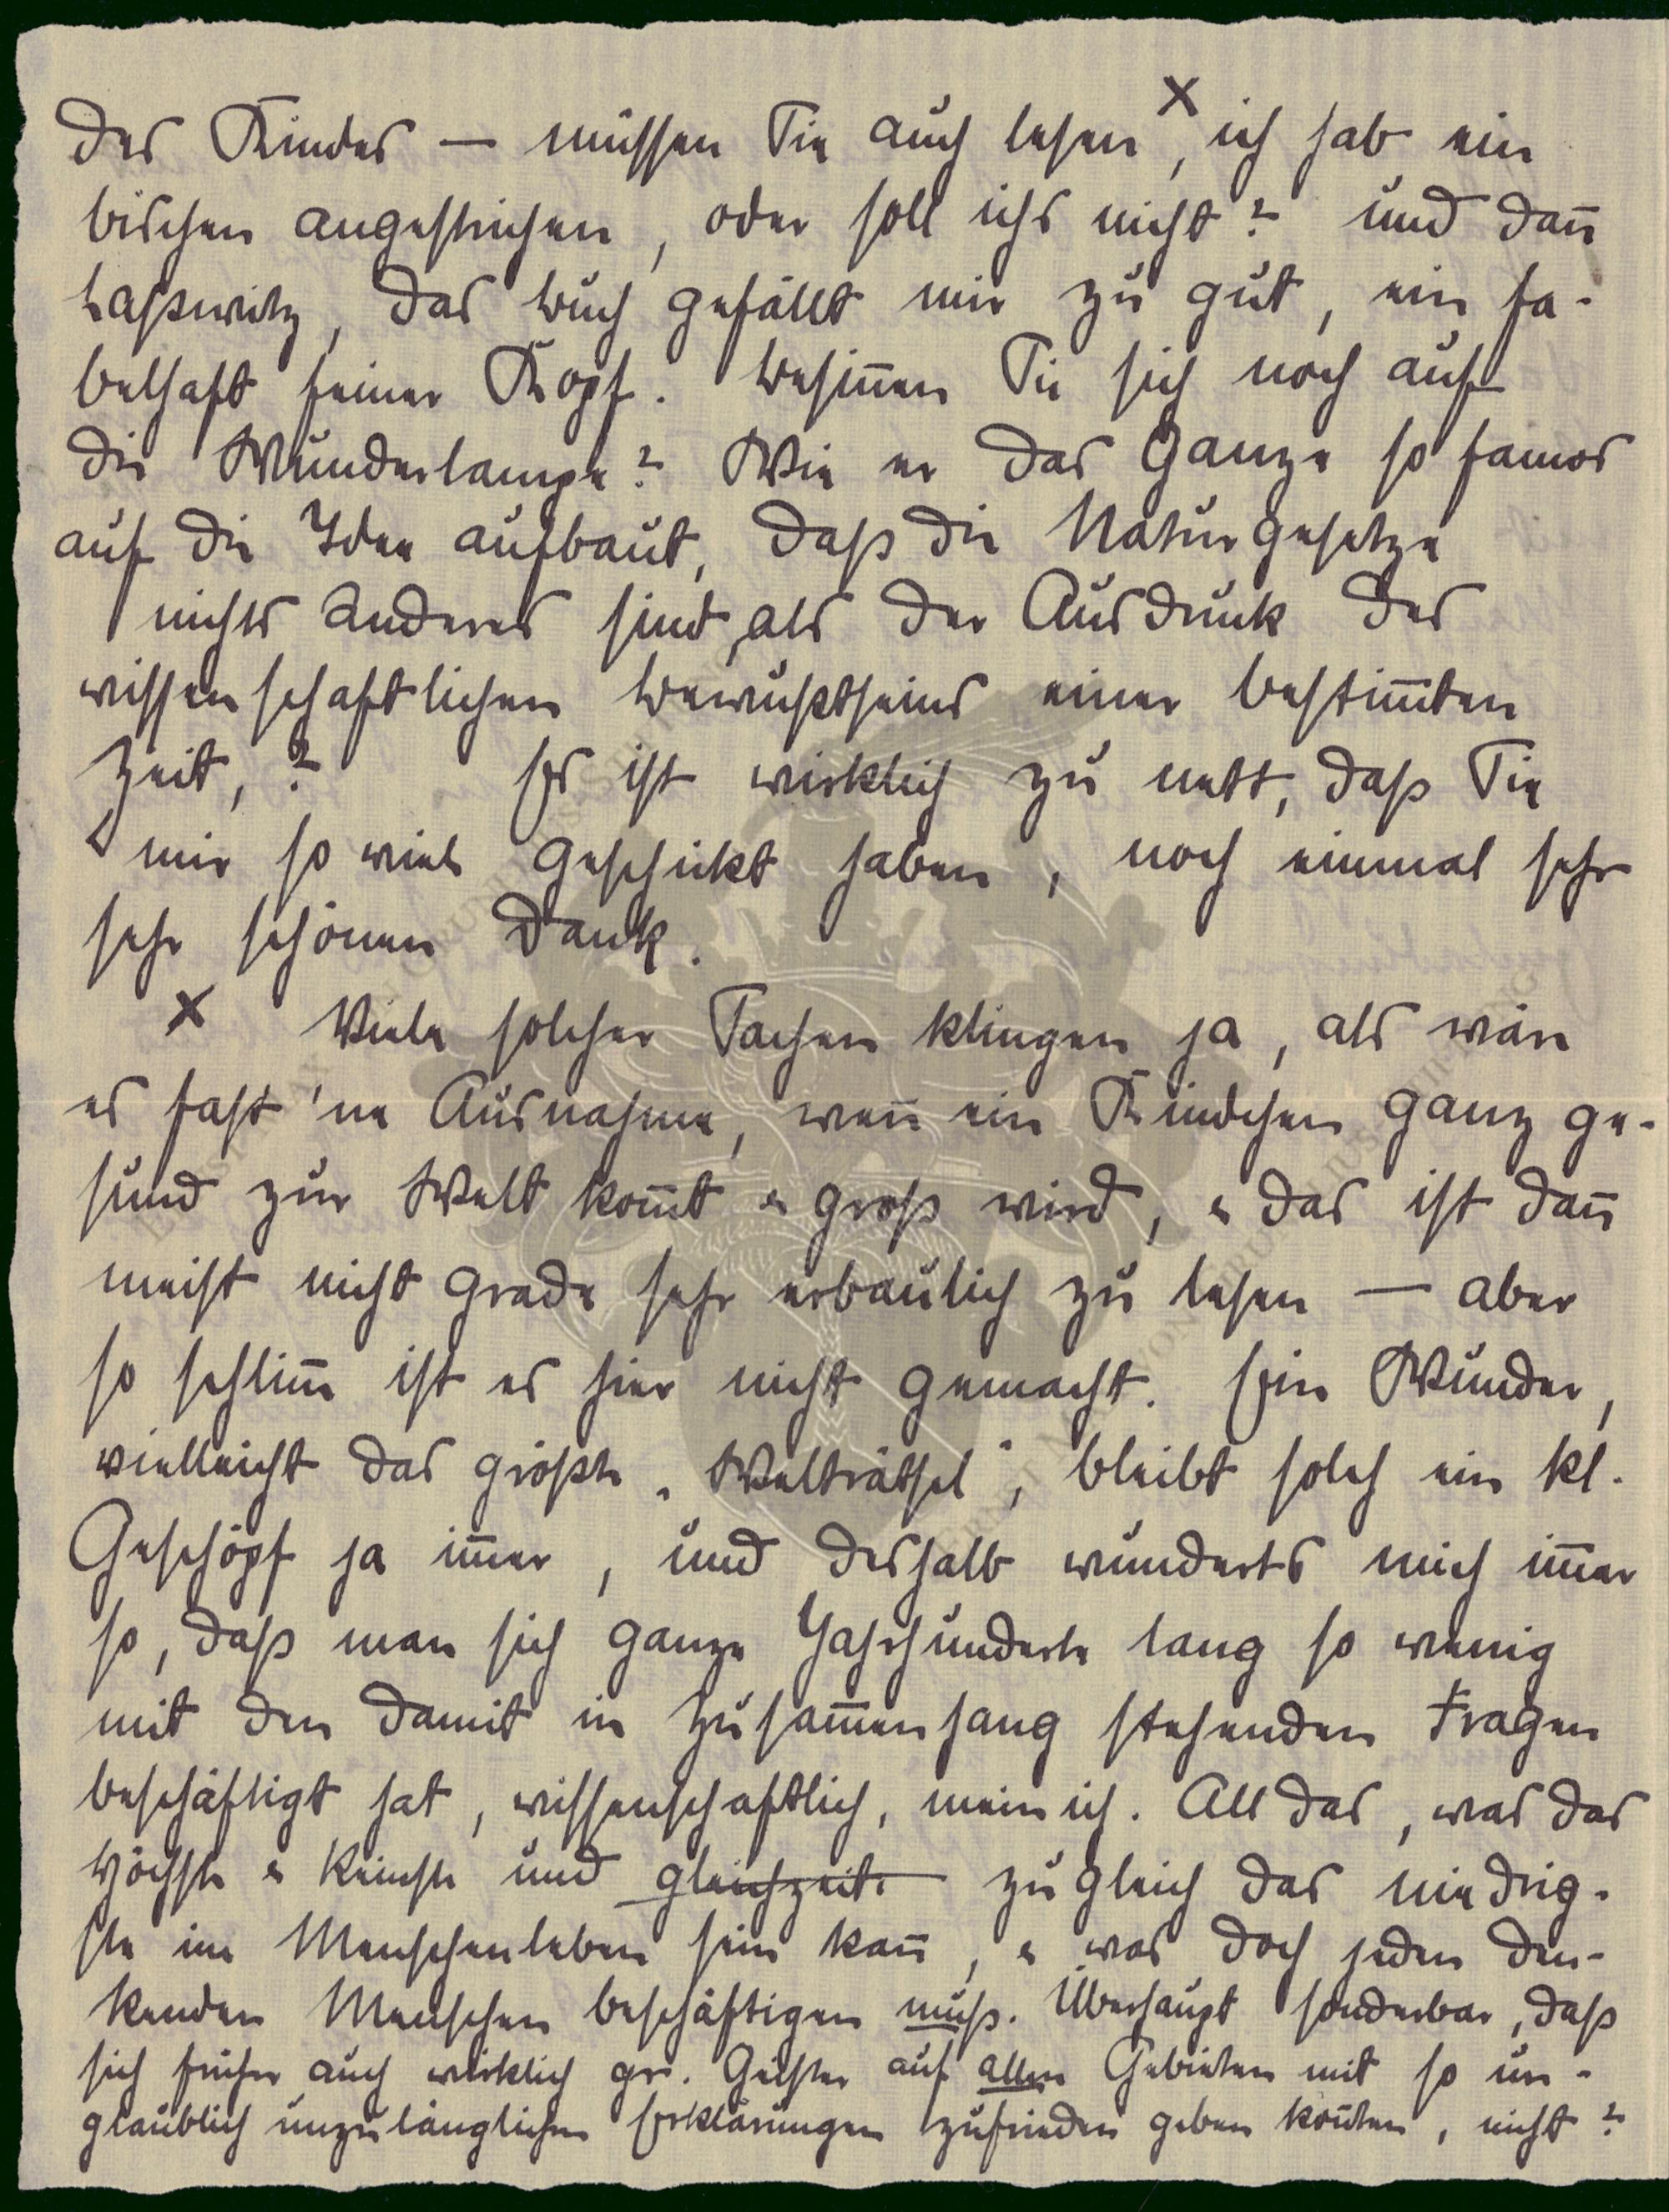 des Kindes — müssen Sie auch lesen ×, ich hab ein
bischen angestrichen, oder soll ichs nicht? und dañ
Laßwitz, das Buch gefällt mir zu gut, ein fa-
belhaft feiner Kopf. Besiñen Sie sich noch auf
die Wunderlampe? Wie er das Ganze so famos
auf die Idee aufbaut, daß die Naturgesetze
nichts anderes sind, als der Ausdruck des
wissenschaftlichen Bewußtseins einer bestim̄ten
Zeit,? Es ist wirklich zu nett, daß Sie
mir so viel geschickt haben, noch einmal sehr
sehr schönen Dank.
× Viele solcher Sachen klingen ja, als wär
es fast 'ne Ausnahme, weñ ein Kindchen ganz ge-
sund zur Welt kom̄t & groß wird, & das ist dañ
meist nicht grade sehr erbaulich zu lesen — aber
so schlim̄ ist es hier nicht gemacht. Ein Wunder,
vielleicht das größte „Welträtsel", bleibt solch ein kl.
Geschöpf ja im̄er, und deshalb wunderts mich im̄er
so, daß man sich ganze Jahrhunderte lang so wenig
mit den damit in Zusam̄enhang stehenden Fragen
beschäftigt hat, wissenschaftlich, mein ich. All das, was das
Höchste & Reinste und gleichzeit. zugleich das niedrig-
ste im Menschenleben sein kañ, & was doch jeden den-
kenden Menschen beschäftigen muß. Überhaupt sonderbar, daß
sich früher auch wirklich gr. Geister auf allen Gebieten mit so un-
glaublich unzulänglichen Erklärungen zufrieden geben koñten, nicht?